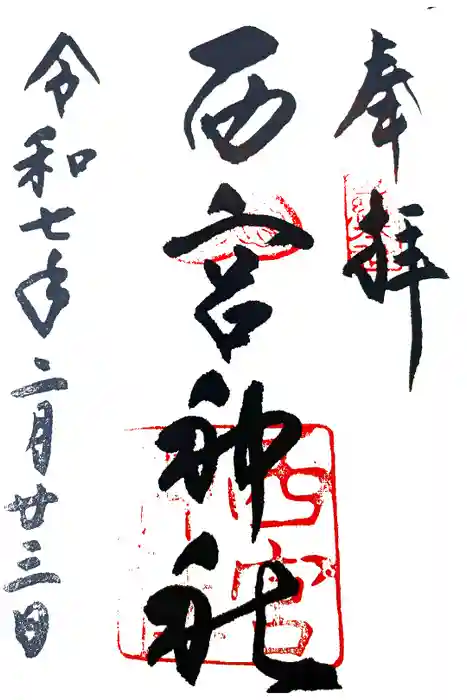 奉拝
西宮神社
令和七年二月廿三日
西宮